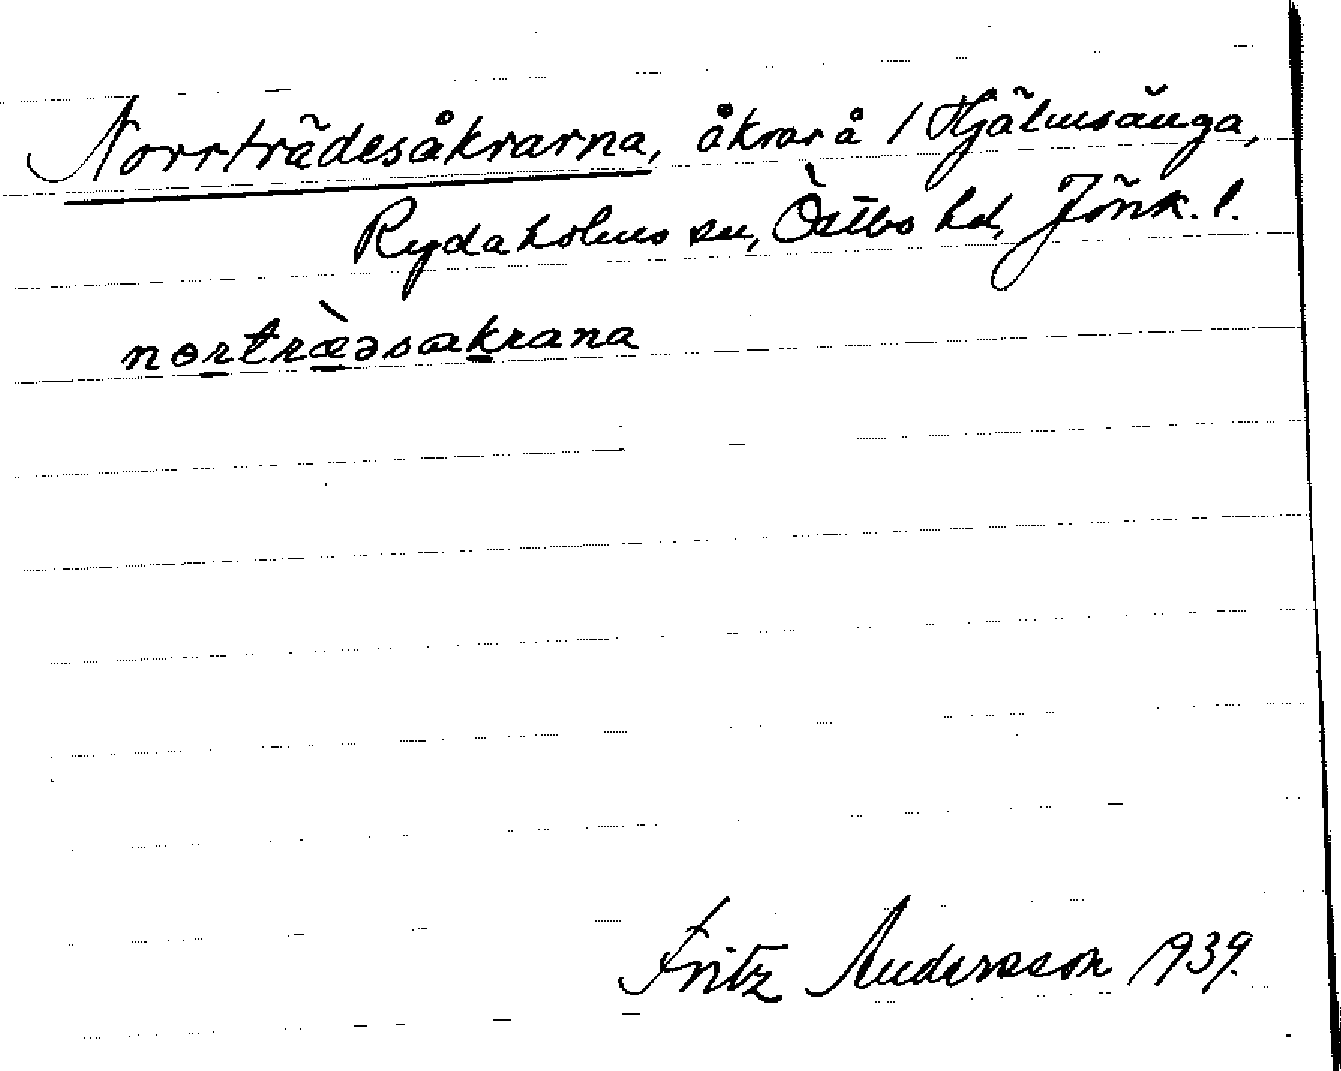 Norrträdesåkrarna, åkrar å / Hjälmsänga,
Rydaholms sn, Östbo hd, Jönk. l.
nørtræ̀əsakrana
Fritz Andersson 1939.